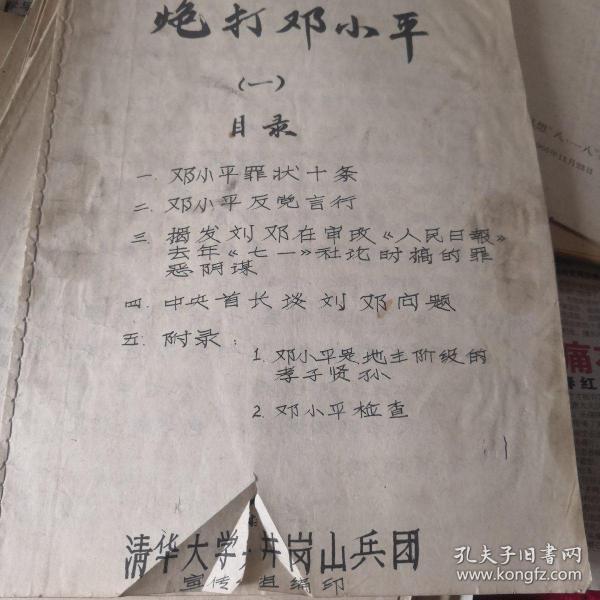 炮打邓小平
(一)
目录
一. 邓小平罪状十条
二. 邓小平反党言行
三. 揭发刘邓在审改《人民日報》
去年《七一》社论时搞的罪
恶阴谋
四. 中央首长谈刘邓问题
五. 附录:
1. 邓小平是地主阶级的
孝子贤孙
2. 邓小平检查
清华大学 井岗山兵团
宣传 编印
想"八·一八"
年11月23日
孔夫子旧书网
www.kongfz.com